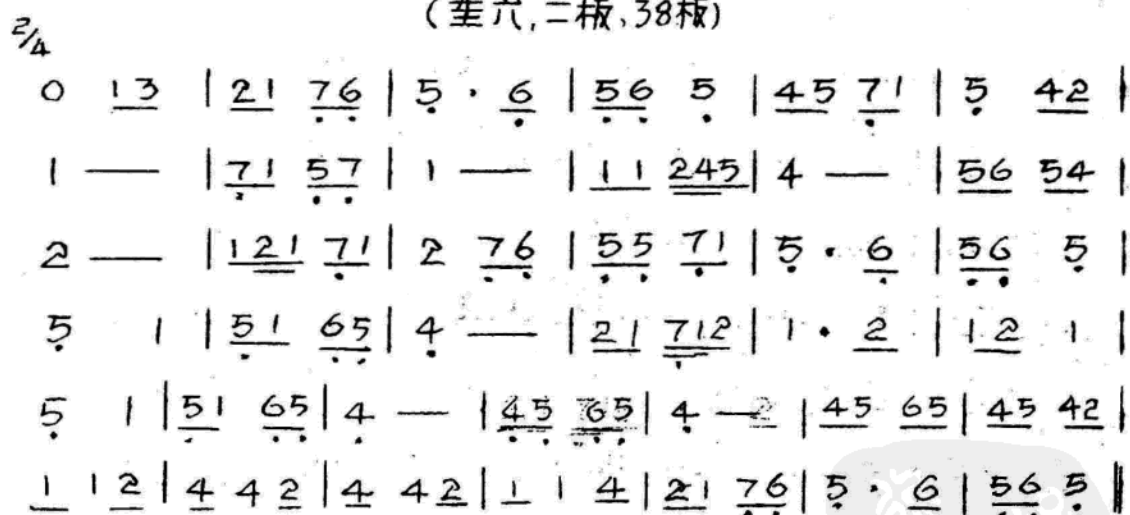 (茥六,二板、38板)
2/4
0 13 | 21 76 | 5 · 6 | 56 5 | 45 71 | 5 42 |
1 — | 71 57 | 1 — | 11 245 | 4 — | 56 54 |
2 — | 121 71 | 2 76 | 55 71 | 5 · 6 | 56 5 |
5 1 | 51 65 | 4 — | 21 712 | 1 · 2 | 12 1 |
5 1 | 51 65 | 4 — | 45 65 | 4 — 2 | 45 65 | 45 42 |
1 1 2 | 4 4 2 | 4 4 2 | 1 1 4 | 21 76 | 5 · 6 | 56 5 ‖